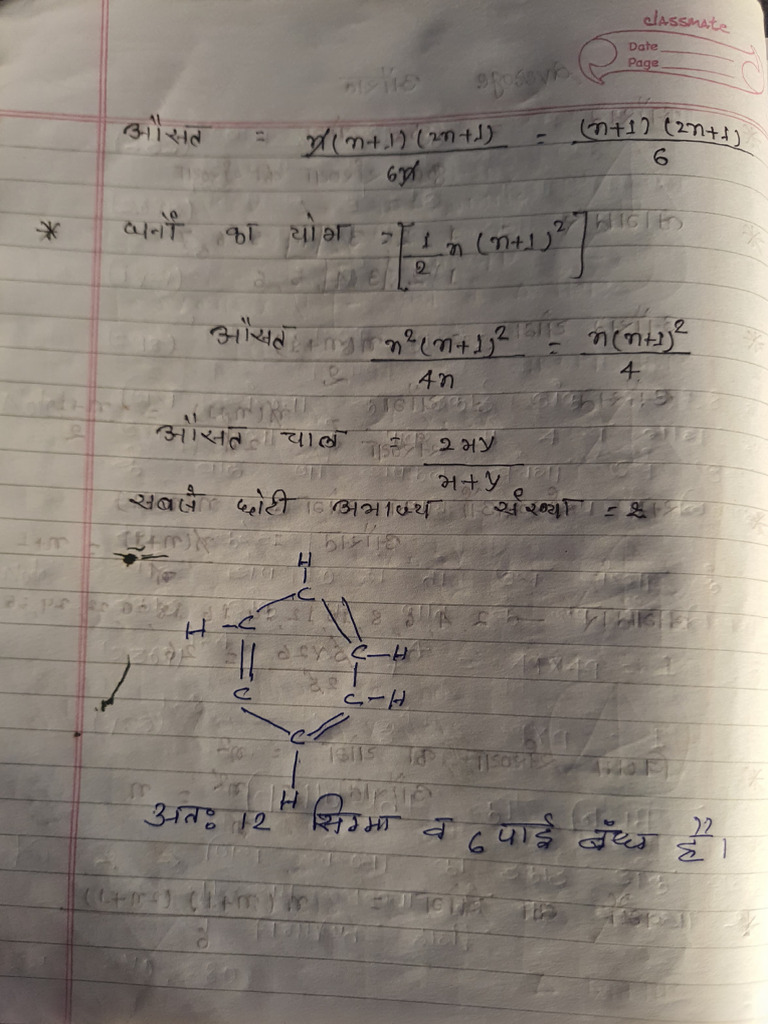 classmate
Date
Page
औसत = n(n+1)(2n+1)/6n = (n+1)(2n+1)/6
* घनों का योग = [1/2 n (n+1)²]
औसत n²(n+1)²/4n = n(n+1)²/4
औसत चाल = 2xy/x+y
सबसे छोटी अभाज्य संख्या = 2
H
C
H-C
C-H
C
C-H
C
H
अतः 12 सिग्मा व 6 पाई बँध हैं।